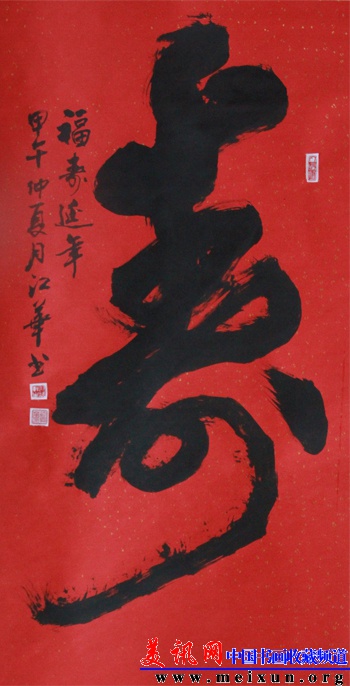 寿
福寿延年
甲午仲夏月江華书
美讯网 中国书画收藏频道
www.meixun.org